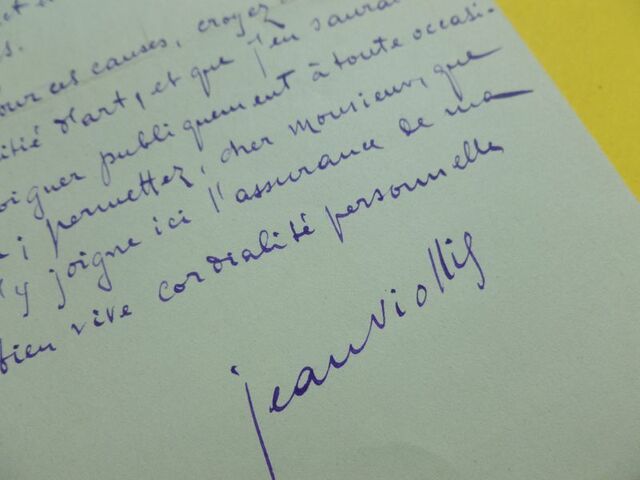 et
s.
pour ces causes, croyez
itié d'art, et que j'en saurai
oigner publiquement à toute occasi-
i permettez, cher Monsieur, que
'y joigne ici l'assurance de ma
bien vive cordialité personnelle
jean viollis